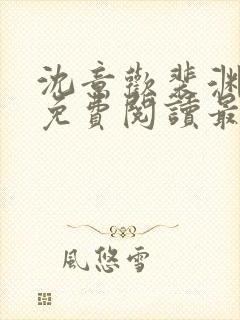 沈意歡裴淵
免費閱讀最
風悠雪